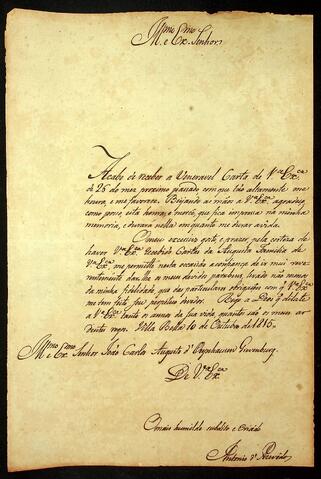 Illmo. e Exmo. Senhor.
Acabo de receber a Veneravel Carta de V.a Ex.ca
de 26 do mez proximo passado, com que tão altamente me
honra, e me favorece. Beijando as mãos a V.a Ex.ca agradeço
como posso, esta honra, e mercê, que fica impressa na minha
memoria, e durará nella em quanto me durar a vida.
O meu excessivo gosto, e prazer, pela certeza de
haver V.a Ex.ca recebido Cartas da Augusta Familia de
V.a Ex.ca me permitta nesta occasião a confiança de ir mui reve
rentemente dar-lhe os meus devidos parabens, tirado não menos
da minha fidelidade, que das particulares obrigações com q' V.a Ex.ca
me tem feito seu perpetuo devedor. Rogo a Deos q' dilate
a V.a Ex.ca tanto os annos da sua vida, quanto são os meus ar
dentes rogos. Villa Bella 10 de Outubro de 1815.
Illmo. e Exmo. Senhor João Carlos Augusto d'Oeynhausen Grevenburg.
De V.a Ex.ca
O mais humilde subdito e Criado
Antonio d' Azevedo